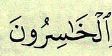 ٱلْخَٰسِرُونَ